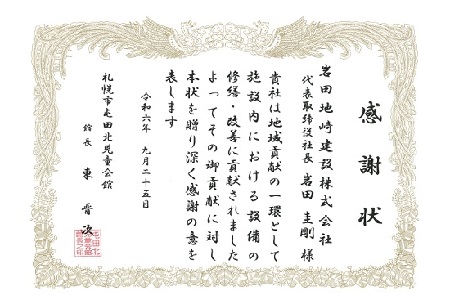 感謝状
岩田地崎建設株式会社
代表取締役社長 岩田圭剛様
貴社は地域貢献の一環として
施設内における設備の
修繕・改善に貢献されました
よってその御貢献に対し
本状を贈り深く感謝の意を
表します
令和六年 九月二十五日
札幌市屯田北児童会館
館長 東 晋次